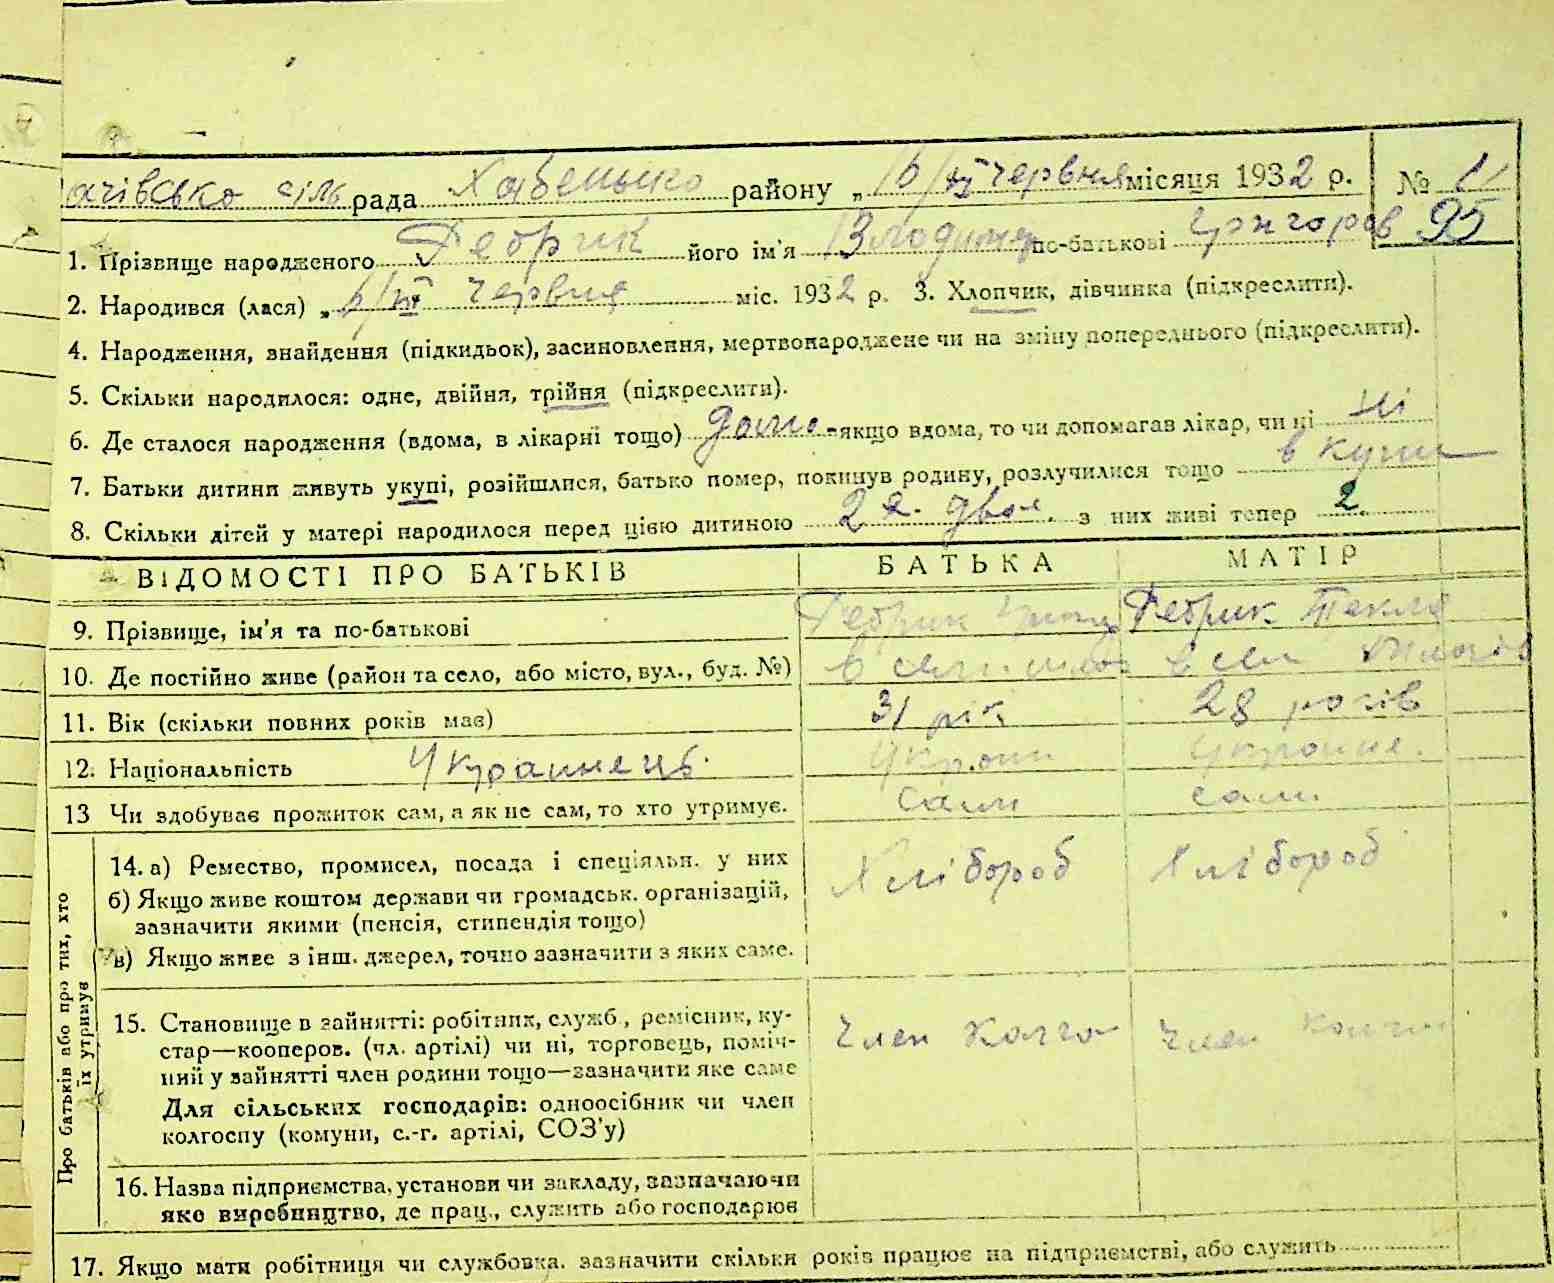 ачівсько сіль рада Хабенько району „ 16/VI червня місяця 1932 р. № 11
95
1. Прізвище народженого Ребрик його ім'я Володимир по-батькові Григоров
2. Народився (лася) „ 6/VI червня міс. 1932 р. 3. Хлопчик, дівчинка (підкреслити).
4. Народження, знайдення (підкидьок), засиновлення, мертвонароджене чи на зміну попереднього (підкреслити).
5. Скільки народилося: одне, двійня, трійня (підкреслити).
6. Де сталося народження (вдома, в лікарні тощо) дома якщо вдома, то чи допомагав лікар, чи ні ні
7. Батьки дитини живуть укупі, розійшлися, батько помер, покинув родину, розлучилися тощо в купи
8. Скільки дітей у матері народилося перед цією дитиною 2 двоя. з них живі тепер 2.
ВІДОМОСТІ ПРО БАТЬКІВ БАТЬКА МАТІР
9. Прізвище, ім'я та по-батькові Ребрик Ребрик Текля
10. Де постійно живе (район та село, або місто, вул., буд. №) в селі в селі
11. Вік (скільки повних років має) 31 рік 28 років
12. Національність Украинець. Украин Украине.
13 Чи здобуває прожиток сам, а як не сам, то хто утримує. сами сами
Про батьків або про тих, хто їх утримує
14. а) Ремество, промисел, посада і спеціяльн. у них Хлібороб Хлібороб
б) Якщо живе коштом держави чи громадськ. організацій,
зазначити якими (пенсія, стипендія тощо)
в) Якщо живе з інш. джерел, точно зазначити з яких саме.
15. Становище в зайнятті: робітник, служб., ремісник, ку-
стар—кооперов. (чл. артілі) чи ні, торговець, поміч- Член Колго Член Колго
ний у зайнятті член родини тощо—зазначити яке саме
Для сільських господарів: одноосібник чи член
колгоспу (комуни, с.-г. артілі, СОЗ'у)
16. Назва підприємства, установи чи закладу, зазначаючи
яке виробництво, де прац., служить або господарює
17. Якщо мати робітниця чи службовка. зазначити скільки років працює на підприємстві, або служить